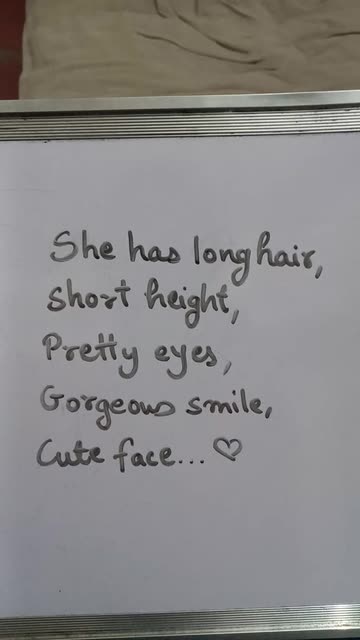 She has long hair,
short height,
Pretty eyes,
Gorgeous smile,
Cute face... ♡